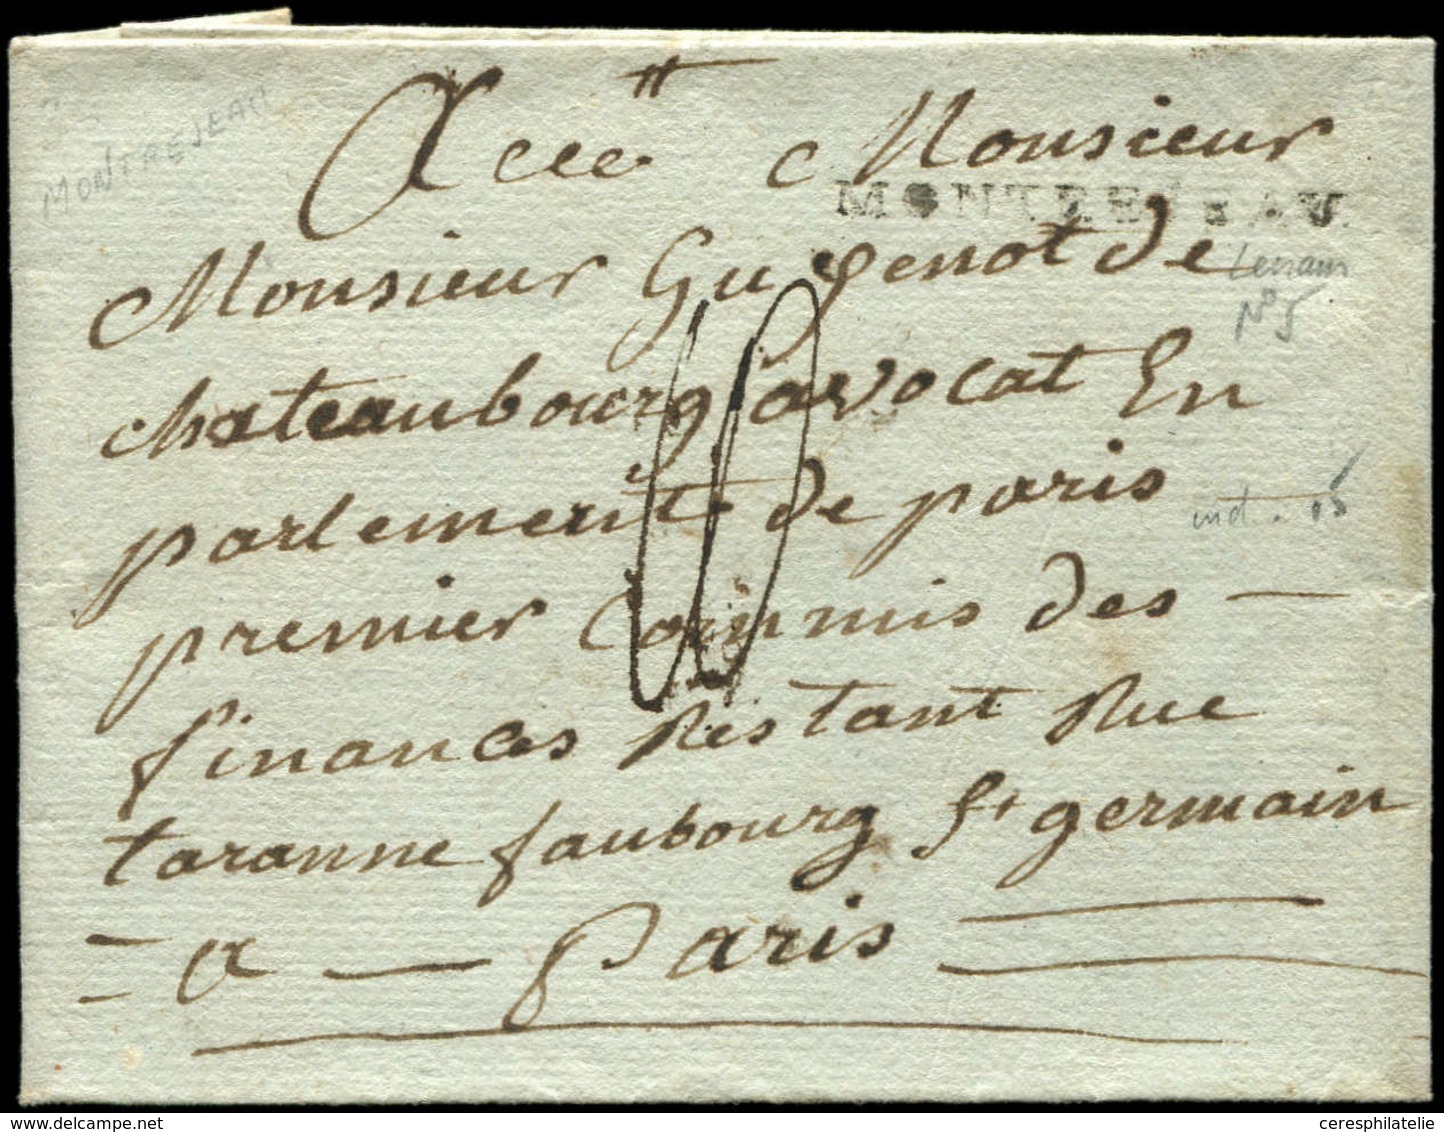 MONTREJEAU
A Monsieur
MONTREJEAU.
Monsieur Guyenot de
Lenain
N° 5
chateaubourg avocat En
parlement de paris
ind. 15
premier commis des —
finances Restant Rue
taranne faubourg St germain
= a — Paris
delcampe.net
ceresphilatelie